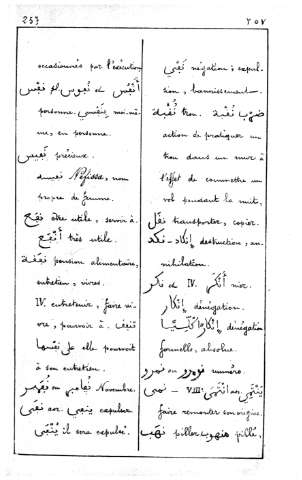 257
٢٥٧
occasionnés par l'exécution
أَنْفُس pl. نُفوس et نَفْس
personne. نَفْسي moi-mê-
me, en personne.
نَفيس précieux.
نفيسة Néfissa, nom
propre de femme.
نَفَع être utile, servir à.
أَنْفَع très utile.
نَفَقَة pension alimentaire,
entretien, vivres.
IV. entretenir, faire vi-
vre, pourvoir à.
elle pourvoit
à son entretien.
ou Novembre.
نَفَى aor. يَنْفي expulser
يُنْفَى il sera expulsé.
نَفْي négation; expul-
sion, bannissement.
نُقْبة trou. ضرب نُقْبة
action de pratiquer un
trou dans un mur à
l'effet de commettre un
vol pendant la nuit.
نقل transporter, copier.
نكد - إنكاد destruction, an-
nihilation.
نكر et IV. أَنْكَر nier.
إِنْكار dénégation.
إِنْكارًا كلّيًّا dénégation
formelle, absolue.
نمرو ou نومرو numéro.
نمى - VIII. انْتَمَى aor. يَنْتَمي
faire remonter son origine.
نهب piller منهوب pillé,